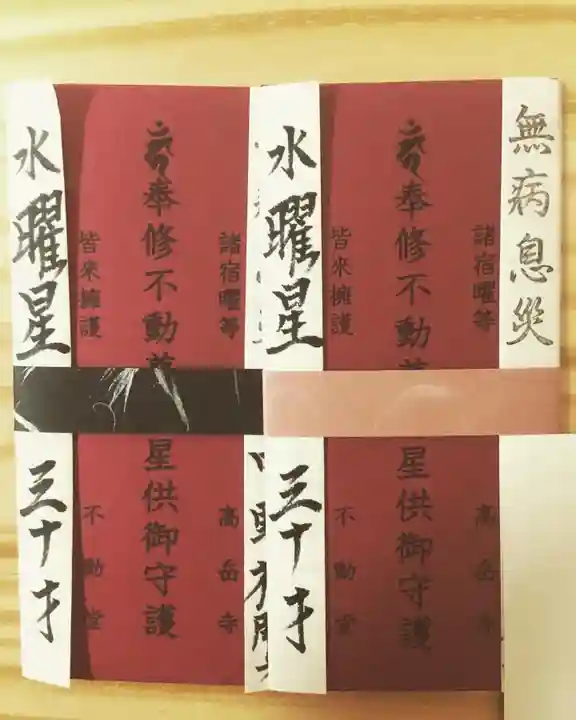 無病息災
諸宿曜等
奉修不動
星供御守護
皆來擁護
高岳寺
不動堂
水曜星
三十才
諸宿曜等
奉修不動
星供御守護
皆來擁護
高岳寺
不動堂
水曜星
三十才